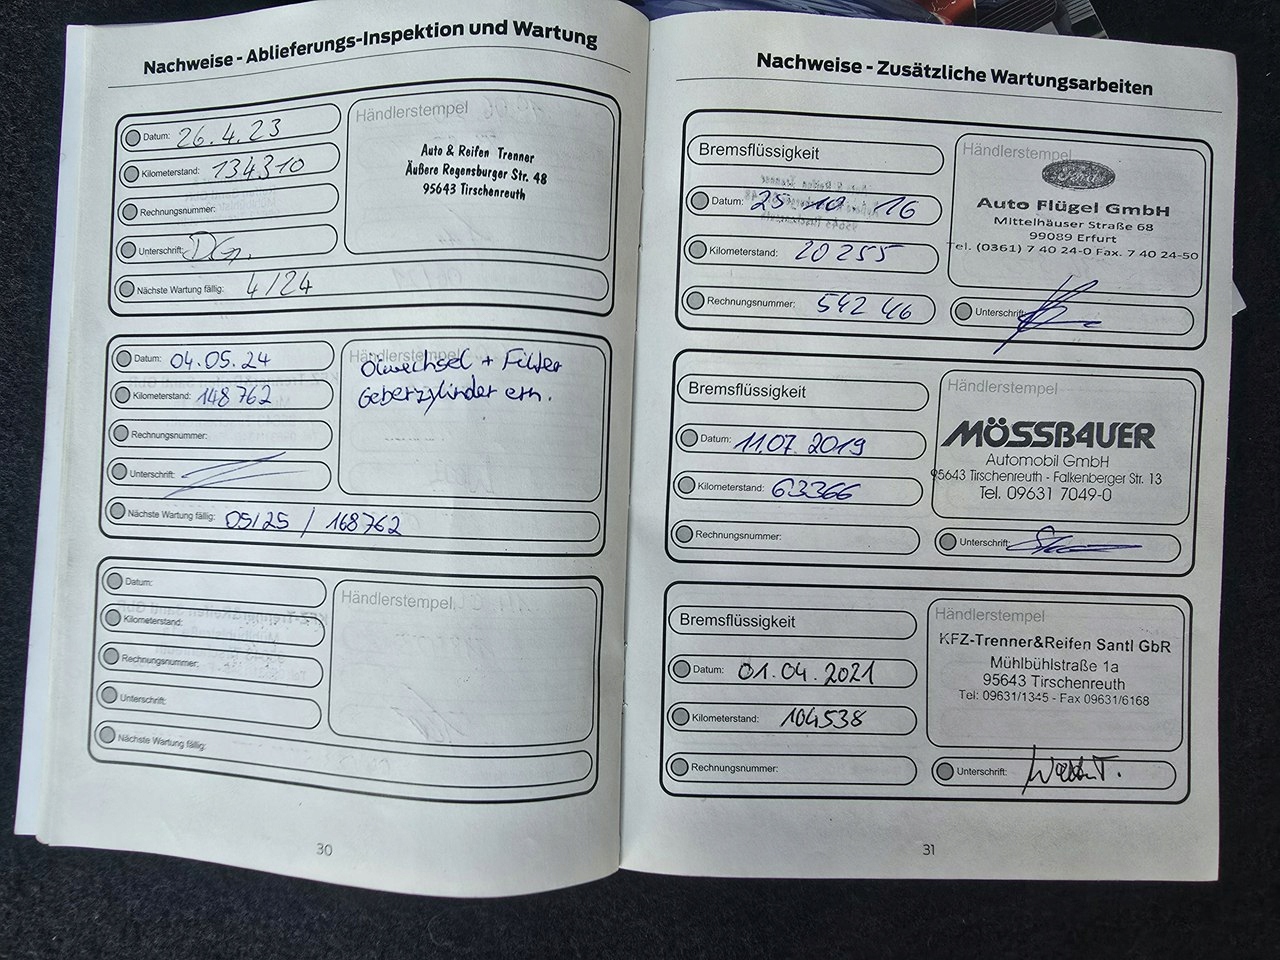 Nachweise - Ablieferungs-Inspektion und Wartung
Datum: 26.4.23
Kilometerstand: 134310
Rechnungsnummer:
Unterschrift:
Nächste Wartung fällig: 4/24
Händlerstempel
Auto & Reifen Trenner
Äußere Regensburger Str. 48
95643 Tirschenreuth
Datum: 04.05.24
Kilometerstand: 148762
Rechnungsnummer:
Unterschrift:
Nächste Wartung fällig: 05/25 / 168762
Händlerstempel
Ölwechsel + Filter
Geberzylinder ern.
Datum:
Kilometerstand:
Rechnungsnummer:
Unterschrift:
Nächste Wartung fällig:
Händlerstempel
30
Nachweise - Zusätzliche Wartungsarbeiten
Bremsflüssigkeit
Datum: 25 10 16
Kilometerstand: 20255
Rechnungsnummer: 542 46
Händlerstempel
Ford
Auto Flügel GmbH
Mittelhäuser Straße 68
99089 Erfurt
Tel. (0361) 7 40 24-0 Fax. 7 40 24-50
Unterschrift:
Bremsflüssigkeit
Datum: 11.07.2019
Kilometerstand: 63366
Rechnungsnummer:
Händlerstempel
MÖSSBAUER
Automobil GmbH
95643 Tirschenreuth - Falkenberger Str. 13
Tel. 09631 7049-0
Unterschrift:
Bremsflüssigkeit
Datum: 01.04.2021
Kilometerstand: 104538
Rechnungsnummer:
Händlerstempel
KFZ-Trenner&Reifen Santl GbR
Mühlbühlstraße 1a
95643 Tirschenreuth
Tel: 09631/1345 - Fax 09631/6168
Unterschrift:
31